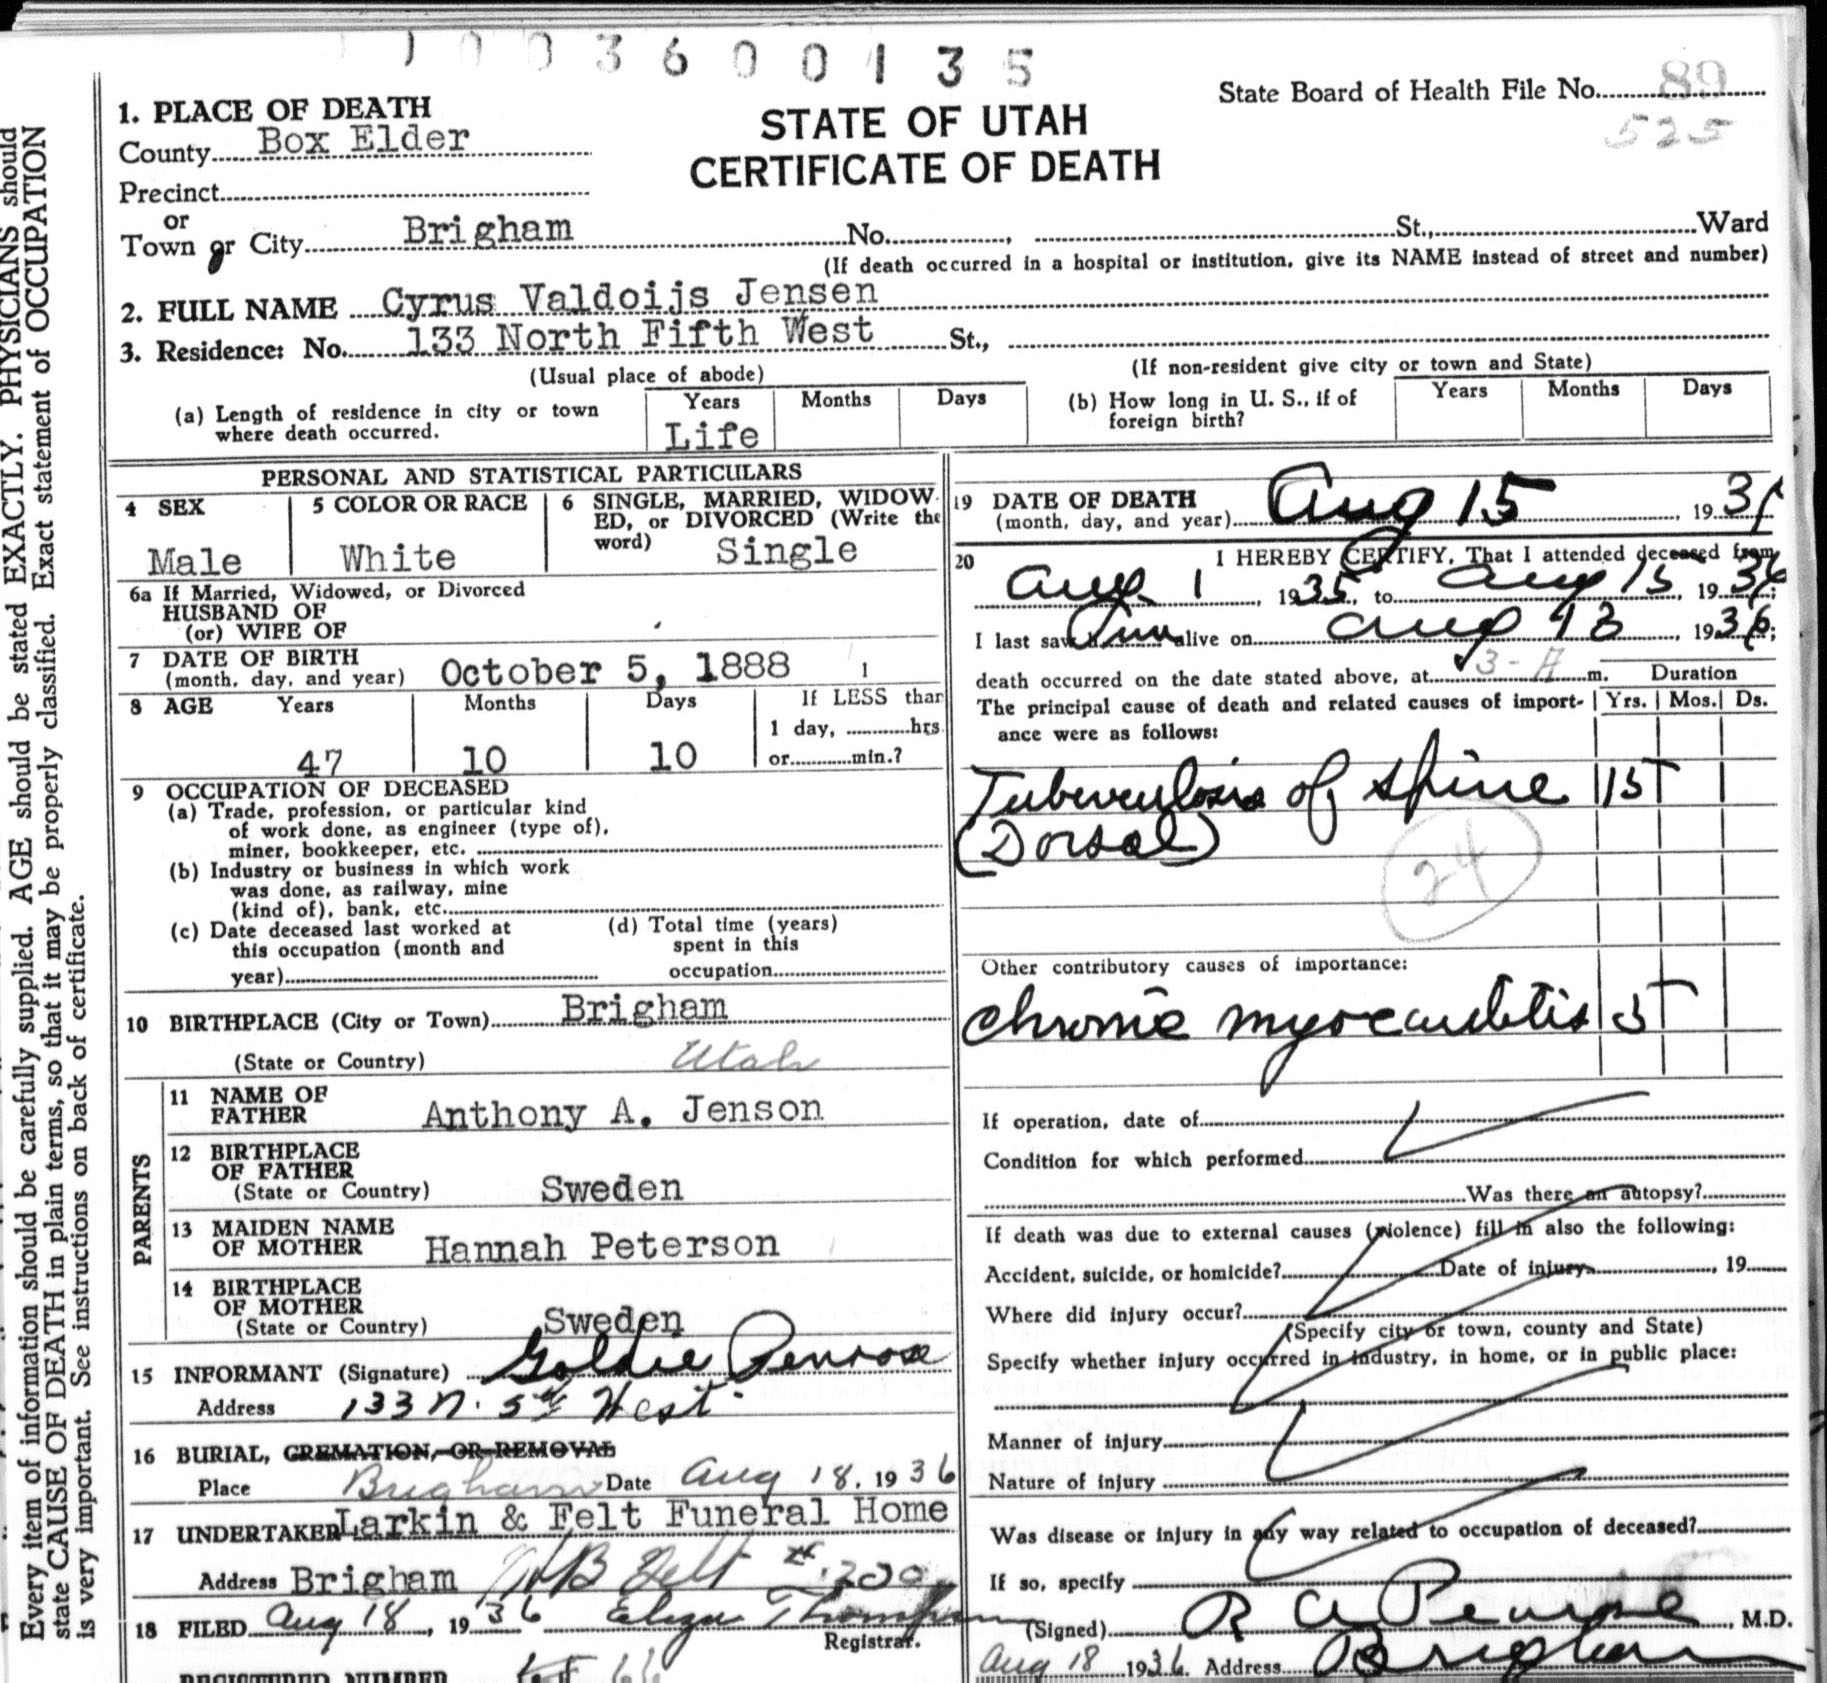 1003600135
State Board of Health File No. 89
525
STATE OF UTAH
CERTIFICATE OF DEATH
1. PLACE OF DEATH
County Box Elder
Precinct
or
Town or City Brigham No. , St., Ward
(If death occurred in a hospital or institution, give its NAME instead of street and number)
2. FULL NAME Cyrus Valdoijs Jensen
3. Residence: No. 133 North Fifth West St.,
(Usual place of abode) (If non-resident give city or town and State)
(a) Length of residence in city or town where death occurred. Years Life Months Days
(b) How long in U. S., if of foreign birth? Years Months Days
PERSONAL AND STATISTICAL PARTICULARS
4 SEX Male
5 COLOR OR RACE White
6 SINGLE, MARRIED, WIDOWED, or DIVORCED (Write the word) Single
6a If Married, Widowed, or Divorced
HUSBAND OF
(or) WIFE OF
7 DATE OF BIRTH
(month, day, and year) October 5, 1888
8 AGE Years Months Days If LESS than
1 day, hrs.
47 10 10 or min.?
9 OCCUPATION OF DECEASED
(a) Trade, profession, or particular kind
of work done, as engineer (type of),
miner, bookkeeper, etc.
(b) Industry or business in which work
was done, as railway, mine
(kind of), bank, etc.
(c) Date deceased last worked at
this occupation (month and
year)
(d) Total time (years)
spent in this
occupation
10 BIRTHPLACE (City or Town) Brigham
(State or Country) Utah
PARENTS
11 NAME OF
FATHER Anthony A. Jenson
12 BIRTHPLACE
OF FATHER
(State or Country) Sweden
13 MAIDEN NAME
OF MOTHER Hannah Peterson
14 BIRTHPLACE
OF MOTHER
(State or Country) Sweden
15 INFORMANT (Signature) Goldie Penrose
Address 133 N. 5th West
16 BURIAL, CREMATION, OR REMOVAL
Place Brigham Date Aug 18, 1936
17 UNDERTAKER Larkin & Felt Funeral Home
Address Brigham
18 FILED Aug 18, 1936 Eliza Thompson
Registrar.
REGISTERED NUMBER 66
19 DATE OF DEATH
(month, day, and year) Aug 15, 193
20 I HEREBY CERTIFY, That I attended deceased from
Aug 1, 1935, to Aug 15, 1936;
I last saw him alive on Aug 13, 1936;
death occurred on the date stated above, at 3-A m. Duration
The principal cause of death and related causes of import- Yrs. Mos. Ds.
ance were as follows:
Tuberculosis of Spine 15
(Dorsal)
24
Other contributory causes of importance:
Chronic myocarditis 5
If operation, date of
Condition for which performed
Was there an autopsy?
If death was due to external causes (violence) fill in also the following:
Accident, suicide, or homicide? Date of injury , 19
Where did injury occur?
(Specify city or town, county and State)
Specify whether injury occurred in industry, in home, or in public place:
Manner of injury
Nature of injury
Was disease or injury in any way related to occupation of deceased?
If so, specify
(Signed) R A Pearse, M.D.
Aug 18 1936. Address Brigham
Every item of information should be carefully supplied. AGE should be stated EXACTLY. PHYSICIANS should
state CAUSE OF DEATH in plain terms, so that it may be properly classified. Exact statement of OCCUPATION
is very important. See instructions on back of certificate.